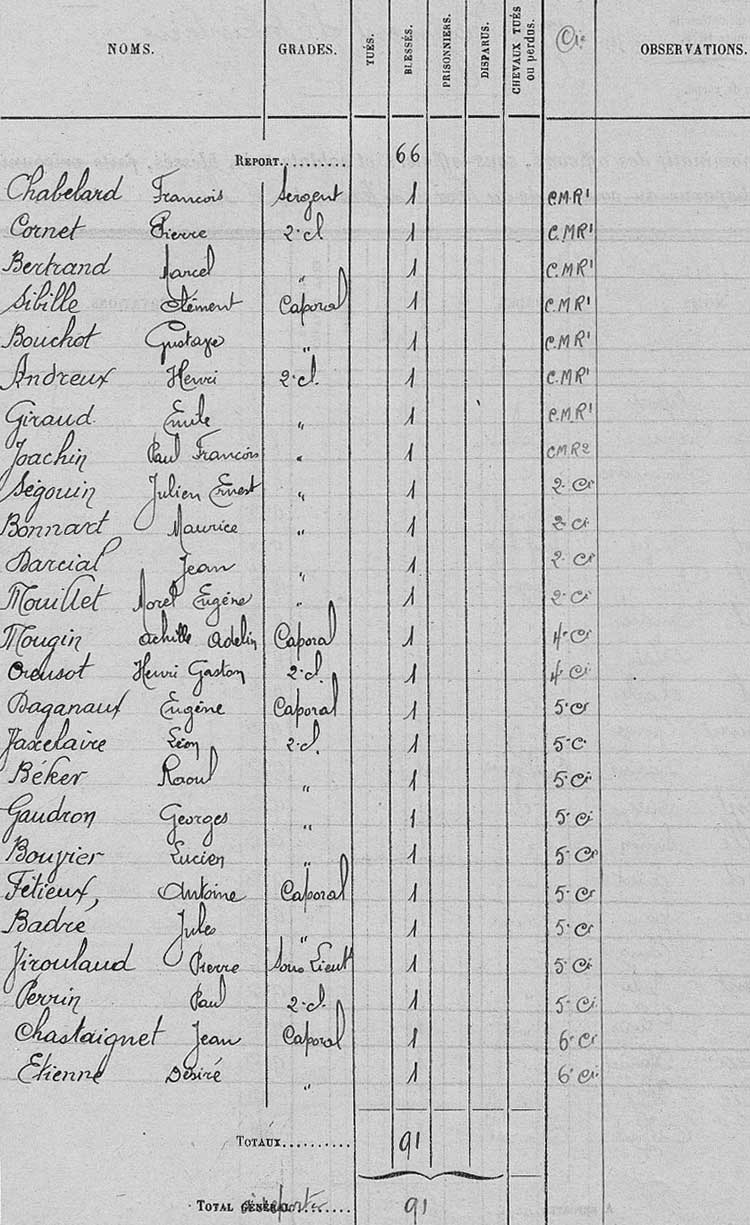 NOMS. GRADES. TUÉS. BLESSÉS. PRISONNIERS. DISPARUS. CHEVAUX TUÉS ou perdus. Cie OBSERVATIONS.
REPORT.......... 66
Chabelard François Sergent 1 C.M.R1
Cornet Pierre 2.cl 1 C.M.R1
Bertrand Marcel " 1 C.M.R1
Sibille Clément Caporal 1 C.M.R1
Bouchot Gustave " 1 C.M.R1
Andreux Henri 2.cl. 1 C.M.R1
Giraud Emile " 1 C.M.R1
Joachin Paul François " 1 C.M.R2
Ségouin Julien Ernest " 1 2.Ci
Bonnart Maurice " 1 2.Ci
Darcial Jean " 1 2.Ci
Mouillet Morel Eugéne " 1 2.Ci
Mougin Achille Adelin Caporal 1 4.Ci
Creusot Henri Gaston 2.cl. 1 4.Ci
Daganaux Eugéne Caporal 1 5.Ci
Jaxelaire Léon 2.cl. 1 5.C
Béker Raoul " 1 5.Ci
Gaudron Georges " 1 5.Ci
Bouvier Lucien " 1 5.Ci
Fétieux, Antoine Caporal 1 5.Ci
Badré Jules " 1 5.Ci
Jiroulaud Pierre Sous Lieut 1 5.Ci
Perrin Paul 2.cl. 1 5.Ci
Chastaignet Jean Caporal 1 6.Ci
Etienne Désiré " 1 6.Ci
TOTAUX.......... 91
TOTAL GÉNÉRAL........ 91